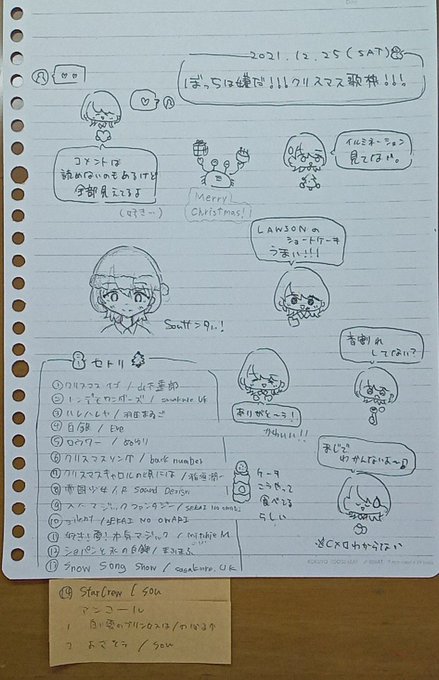 2021.12.25(SAT)
ぼっちは嫌だ!!!クリスマス歌枠!!!
コメントは
読めないのもあるけど
全部見えてるよ
(好き…)
Merry
Christmas!!
イルミネーション
見てない。
LAWSONの
ショートケーキ
うまい!!!
Souサンタぃ!
音割れ
してない?
ありがと〜う!
かわいい!!
まじで
わかんないよ〜
ケーキ
こうやって
食べてる
らしい
※CメロわからないI
セトリ
①クリスマスイブ / 山下達郎
②トンデモワンダーズ / sasakure.UK
③ハレハレヤ / 羽生まゐご
④白銀 / Eve
⑤ロウワー / ぬゆり
⑥クリスマスソング / back number
⑦クリスマスキャロルの頃には / 稲垣潤一
⑧雪図少女 / R Sound Design
⑨スノーマジックファンタジー / SEKAI NO OWARI
⑩silent / SEKAI NO OWARI
⑪好き!雪!本気マジック / Mitchie M
⑫ショパンと氷の白鍵 / まふまふ
⑬Snow Song Show / sasakure.UK
⑭ StarCrew / Sou
アンコール
1 白い雪のプリンセスは / のぼる↑
2 / Sou